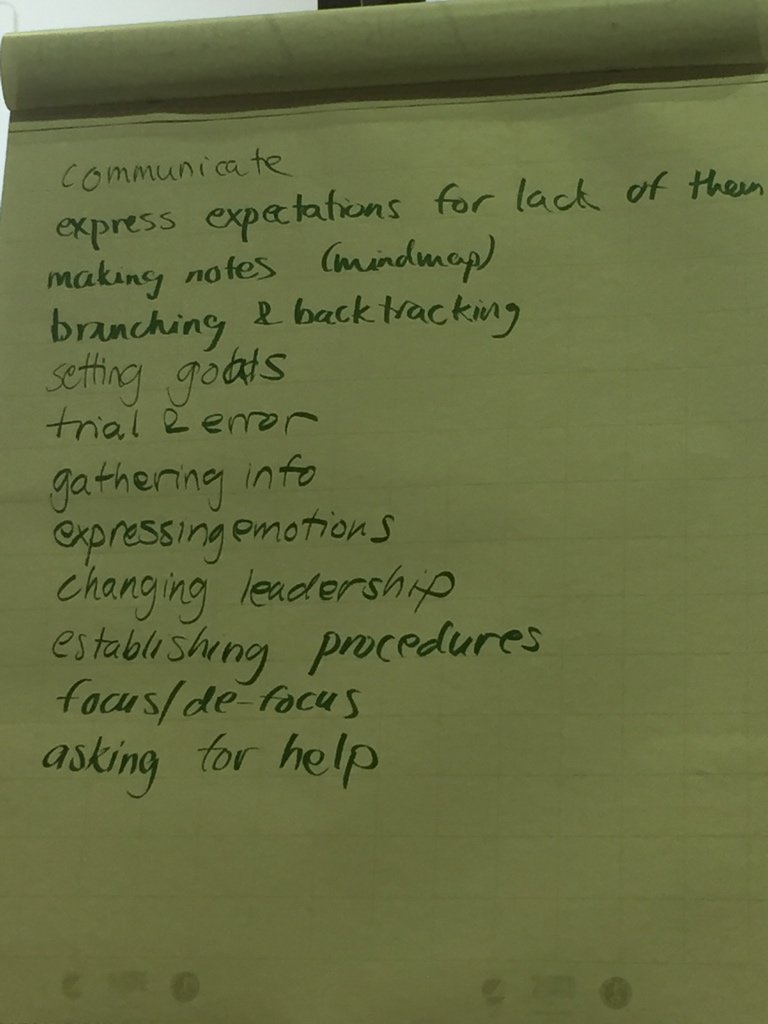 communicate
express expectations for lack of them
making notes (mindmap)
branching & backtracking
setting goals
trial & error
gathering info
expressing emotions
changing leadership
establishing procedures
focus/de-focus
asking for help